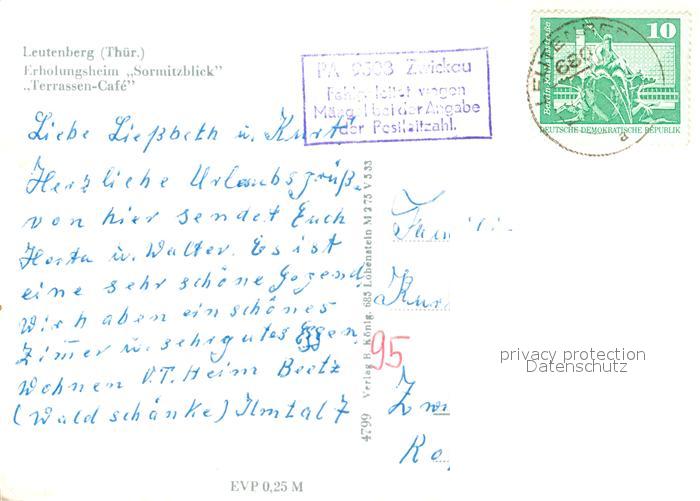 Leutenberg (Thür.)
Erholungsheim „Sormitzblick"
„Terrassen-Café"
PA 9508 Zwickau
Fehlgeleitet wegen
Mängel bei der Angabe
der Postleitzahl.
LEUTENBERG
10
DEUTSCHE DEMOKRATISCHE REPUBLIK
Liebe Ließbeth u. Kurt
Herzliche Urlaubsgrüße
von hier sendet Euch
Herta u. Walter. Es ist
eine sehr schöne Gegend,
Wir haben ein schönes
Zimmer u. sehr gutes Essen,
Wohnen V.T. Heim Beetz
(Waldschänke) Ilmtal 7
4799 Verlag R. König, 685 Lobenstein M 275 V 533
Famili
Kur
95
Zwi
Ro
privacy protection
Datenschutz
EVP 0,25 M